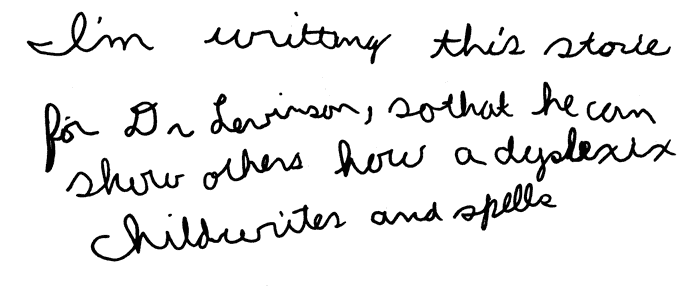 I'm writting this storie
for Dr Levinson, sothat he can
show others how a dyslexix
Childwrites and spells